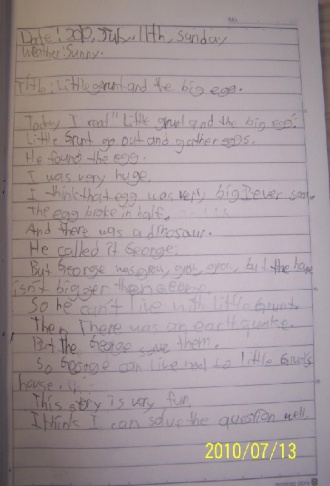 Date: 2010, July. 11th, Sunday
Weather: Sunny.
Title: Little grunt and the big egg.
Today I read "Little grunt and the big egg".
Little Grunt go out and gather eggs.
He found the egg.
I was very huge.
I think that egg was very big I ever seen.
The egg broke in half.
And there was a dinosaur.
He called it George.
But George was grow, grow, grow, but the house
isn't bigger then George.
So he can't live with little Grunt.
Then There was an earthquake.
But The George save them.
So George can live next to little Grunt's
house.
This story is very fun
I think I can solve the question well.
2010/07/13